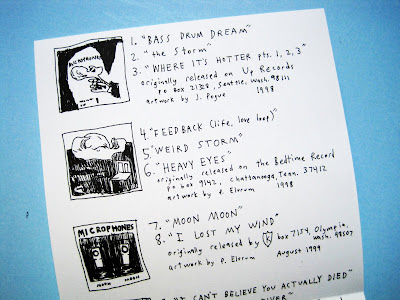 MICROPHONES
1. "BASS DRUM DREAM"
2. "the Storm"
3. "WHERE IT'S HOTTER pts. 1, 2, 3"
originally released on Up Records
po box 21328, Seattle, Wash. 98111
artwork by J. Pogue 1998
4. "FEEDBACK (life, love loop)"
5. "WEIRD STORM"
6. "HEAVY EYES"
originally released on the Bedtime Record
po box 9142, chattanooga, Tenn. 37412
artwork by P. Elvrum 1998
MICROPHONES
MOON MOON
7. "MOON MOON"
8. "I LOST MY WIND"
originally released by K box 7154, Olympia,
Wash. 98507
artwork by P. Elvrum August 1999
"I CAN'T BELIEVE YOU ACTUALLY DIED"